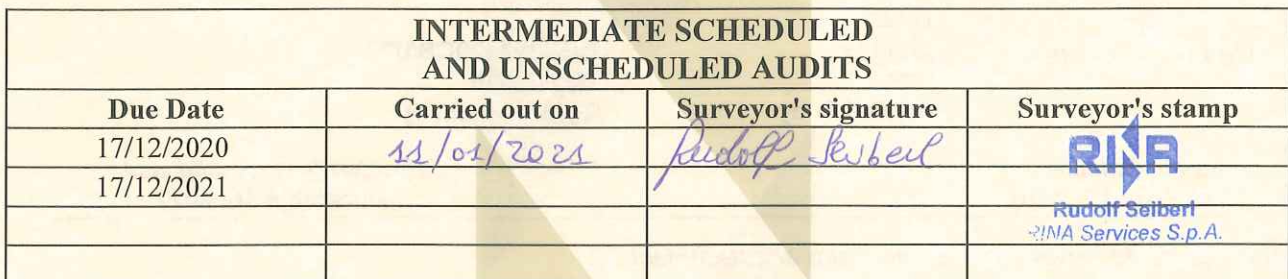 INTERMEDIATE SCHEDULED
AND UNSCHEDULED AUDITS
Due Date Carried out on Surveyor's signature Surveyor's stamp
17/12/2020 11/01/2021 Rudolf Seiberl RINA
17/12/2021
Rudolf Seiberl
RINA Services S.p.A.